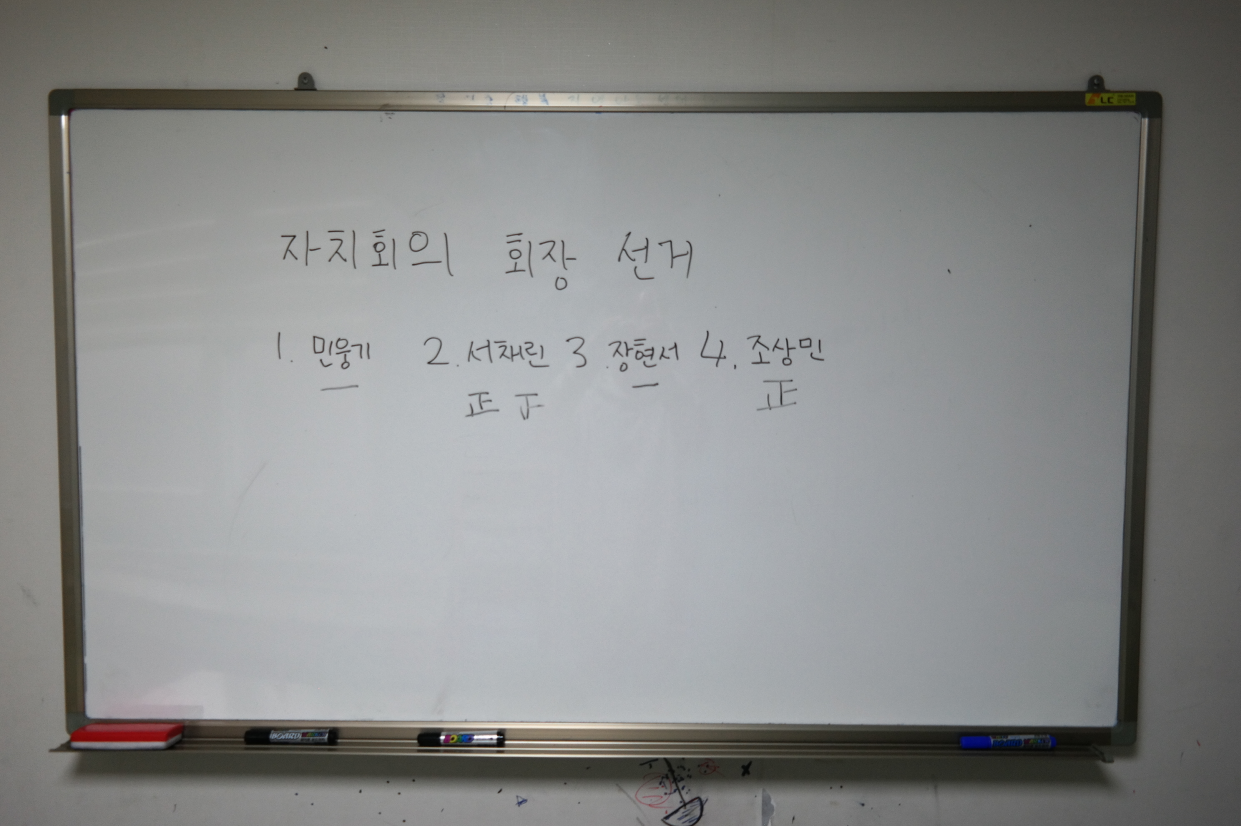 자치회의 회장 선거
1. 민웅기 2. 서채린 3. 장현서 4. 조상민
一 正 下 一 正
LC
BOARD